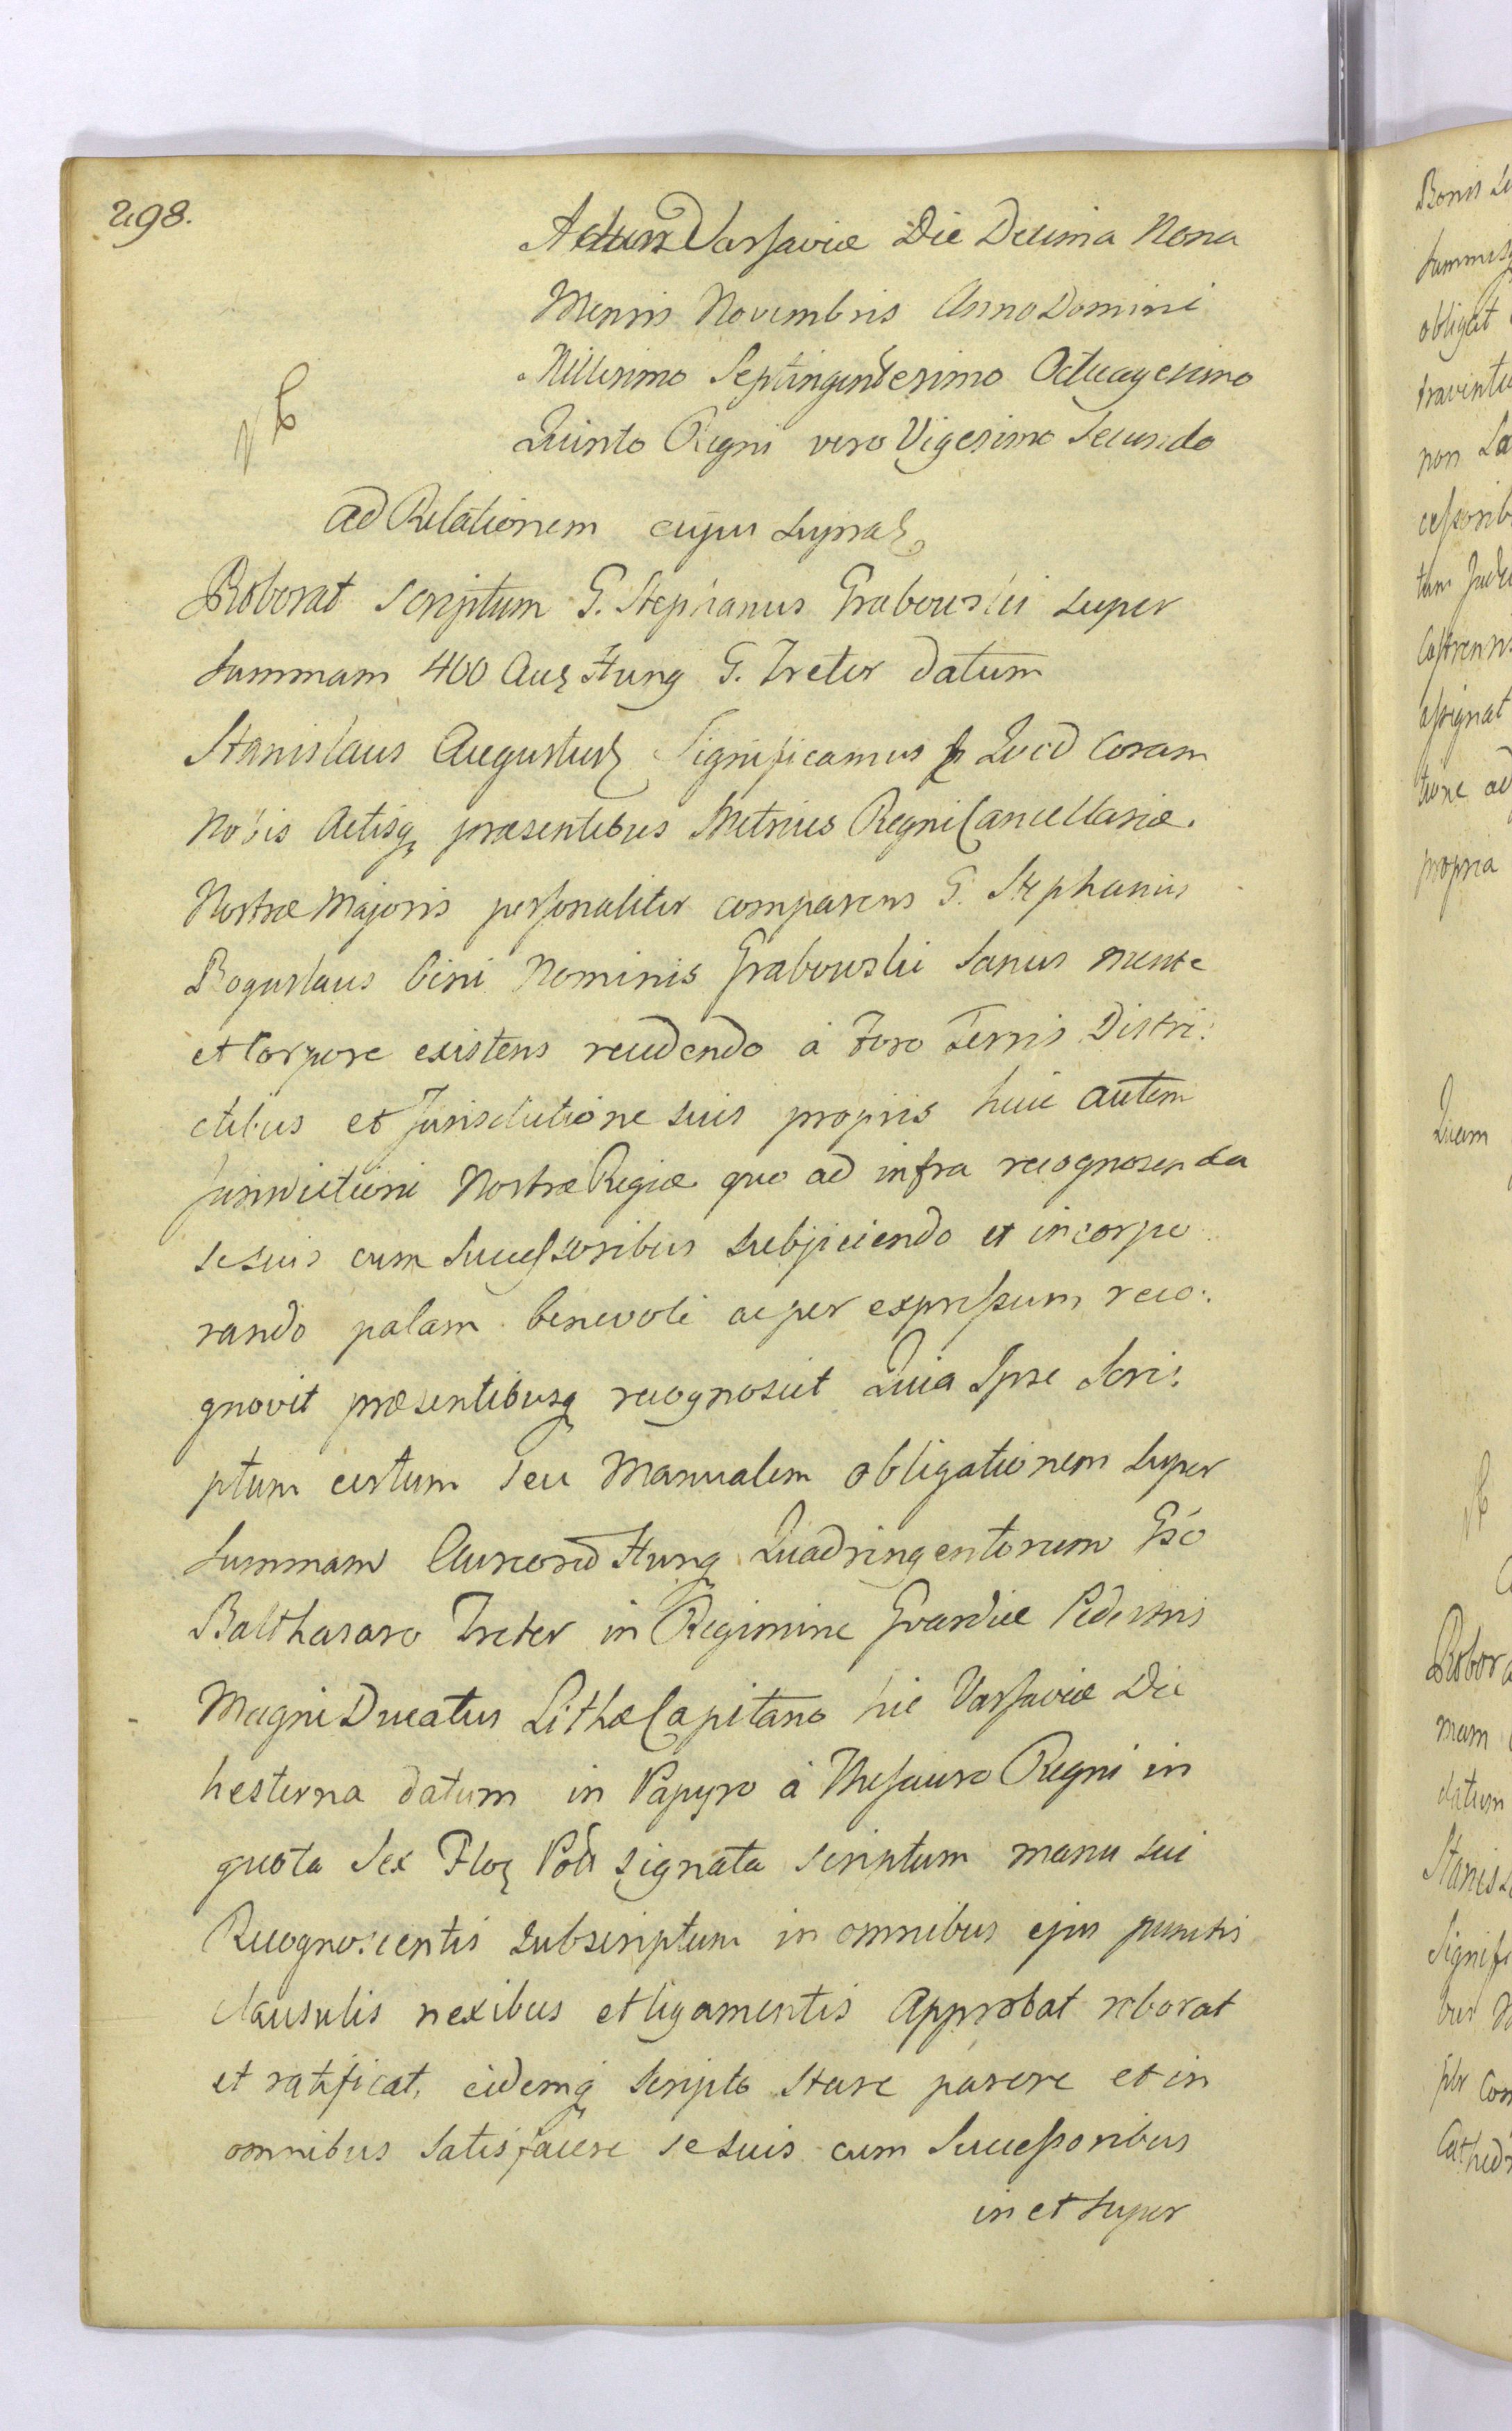 298.
Actum Varsaviæ Die Decima Nona
Mensis Novembris Anno Domini
Millesimo Septingentesimo Octuagesimo
Quinto Regni vero Vigesimo Secundo
ad Relationem cujus supra
Roborat Scriptum G. Stephanus Grabowski super
Summam 400 Aur Hung G. Treter datum
Stanislaus Augustus Significamus Quod Coram
Nobis Actisq præsentibus Metrices Regni Cancellariæ
Nostræ Majoris personaliter comparens G. Stephanus
Boguslaus bini Nominis Grabowski Sanus mente
et Corpore existens recedendo à Foro Terris Distri:
ctibus et Jurisdictione suis propriis huic autem
Jurisdictioni Nostræ Regiæ quo ad infra recognoscenda
se suis cum Successoribus subjiciendo et incorpo
rando palam benevole ac per expressum reco:
gnovit præsentibusq recognoscit Quia Ipse Scri:
ptum certum seu Manualem obligationem super
Summam Aureord Hung Quadringentorum Gso
Balthasaro Treter in Regimine Gvardiæ Pedestris
Magni Ducatus Lithæ Capitano hic Varsaviæ Die
hesterna datum in Papyro à Thesauro Regni in
quota Sex Flor Pol signata scriptum manu sui
Recognoscentis subscriptum in omnibus ejus punctis
clausulis nexibus et ligamentis Approbat roborat
et ratificat, eidemq scripto stare parere et in
omnibus Satisfacere se suis cum Successoribus
in et super
Bonis
obligat
non
propria
Quam
datum